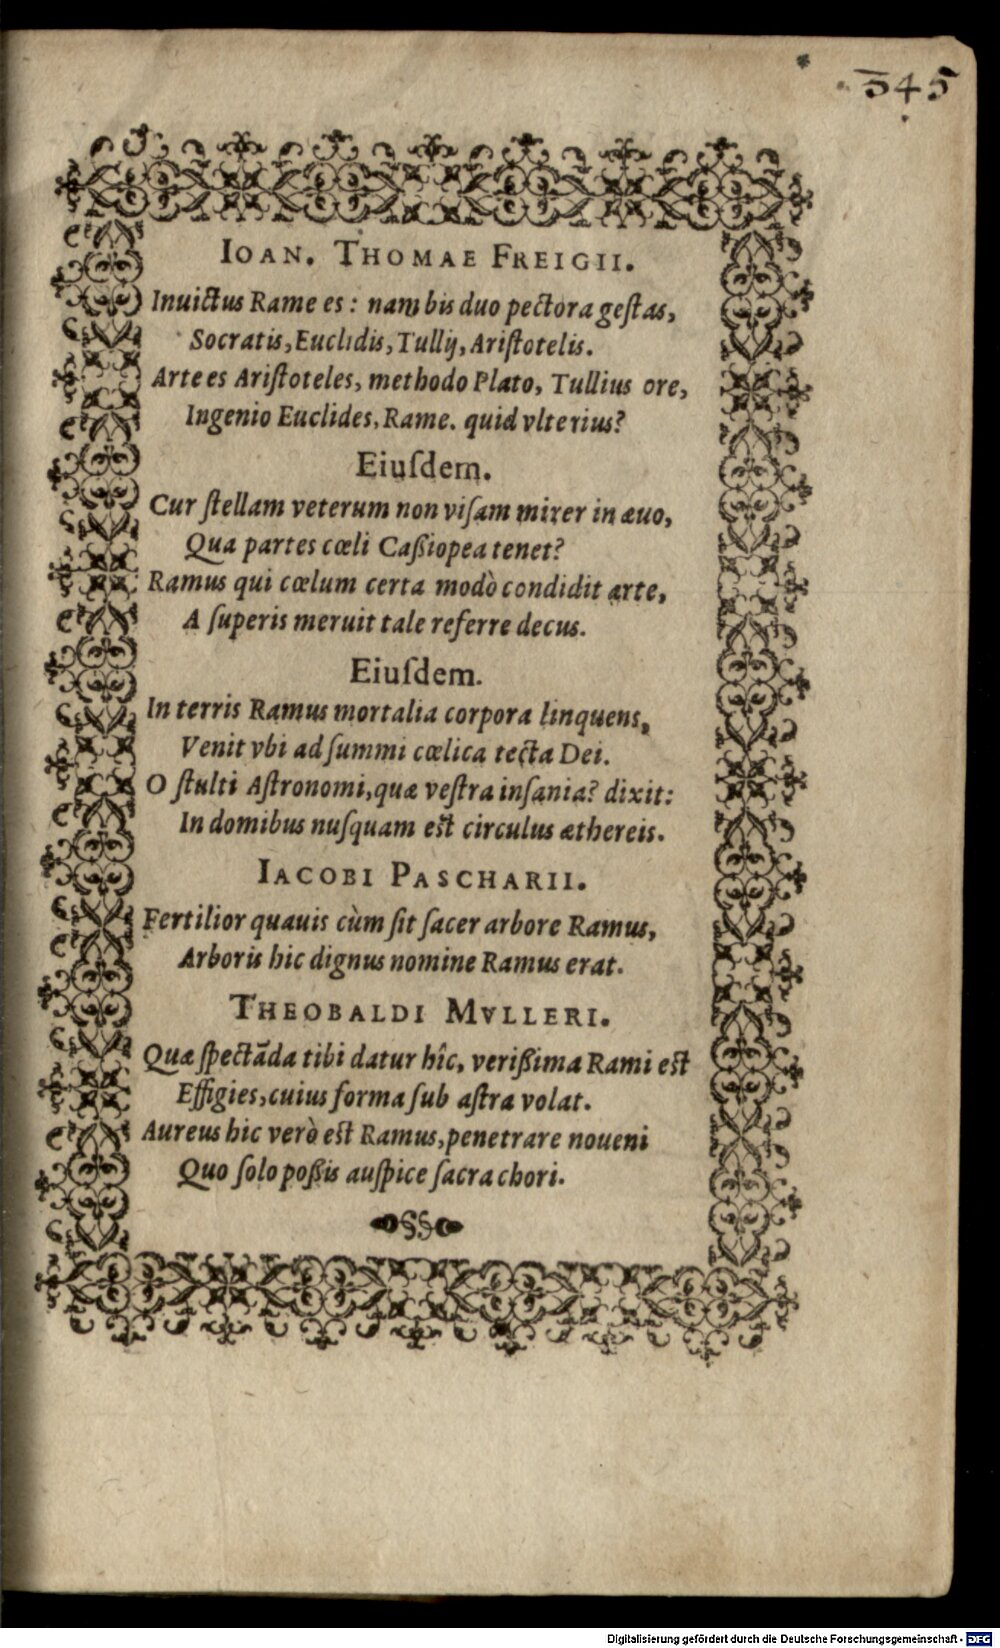 345
IOAN. THOMAE FREIGII.
Inuictus Rame es: nam bis duo pectora geſtas,
Socratis, Euclidis, Tullij, Ariſtotelis.
Arte es Ariſtoteles, methodo Plato, Tullius ore,
Ingenio Euclides, Rame. quid vlterius?
Eiuſdem.
Cur ſtellam veterum non viſam mirer in æuo,
Qua partes cœli Caßiopea tenet?
Ramus qui cœlum certa modò condidit arte,
A ſuperis meruit tale referre decus.
Eiuſdem.
In terris Ramus mortalia corpora linquens,
Venit vbi ad ſummi cœlica tecta Dei.
O ſtulti Aſtronomi, quæ veſtra inſania? dixit:
In domibus nuſquam eſt circulus æthereis.
IACOBI PASCHARII.
Fertilior quauis cùm ſit ſacer arbore Ramus,
Arboris hic dignus nomine Ramus erat.
THEOBALDI MVLLERI.
Quæ ſpectãda tibi datur hîc, verißima Rami eſt
Effigies, cuius forma ſub aſtra volat.
Aureus hic verò eſt Ramus, penetrare noueni
Quo ſolo poßis auſpice ſacra chori.
§§
Digitalisierung gefördert durch die Deutsche Forschungsgemeinschaft - DFG